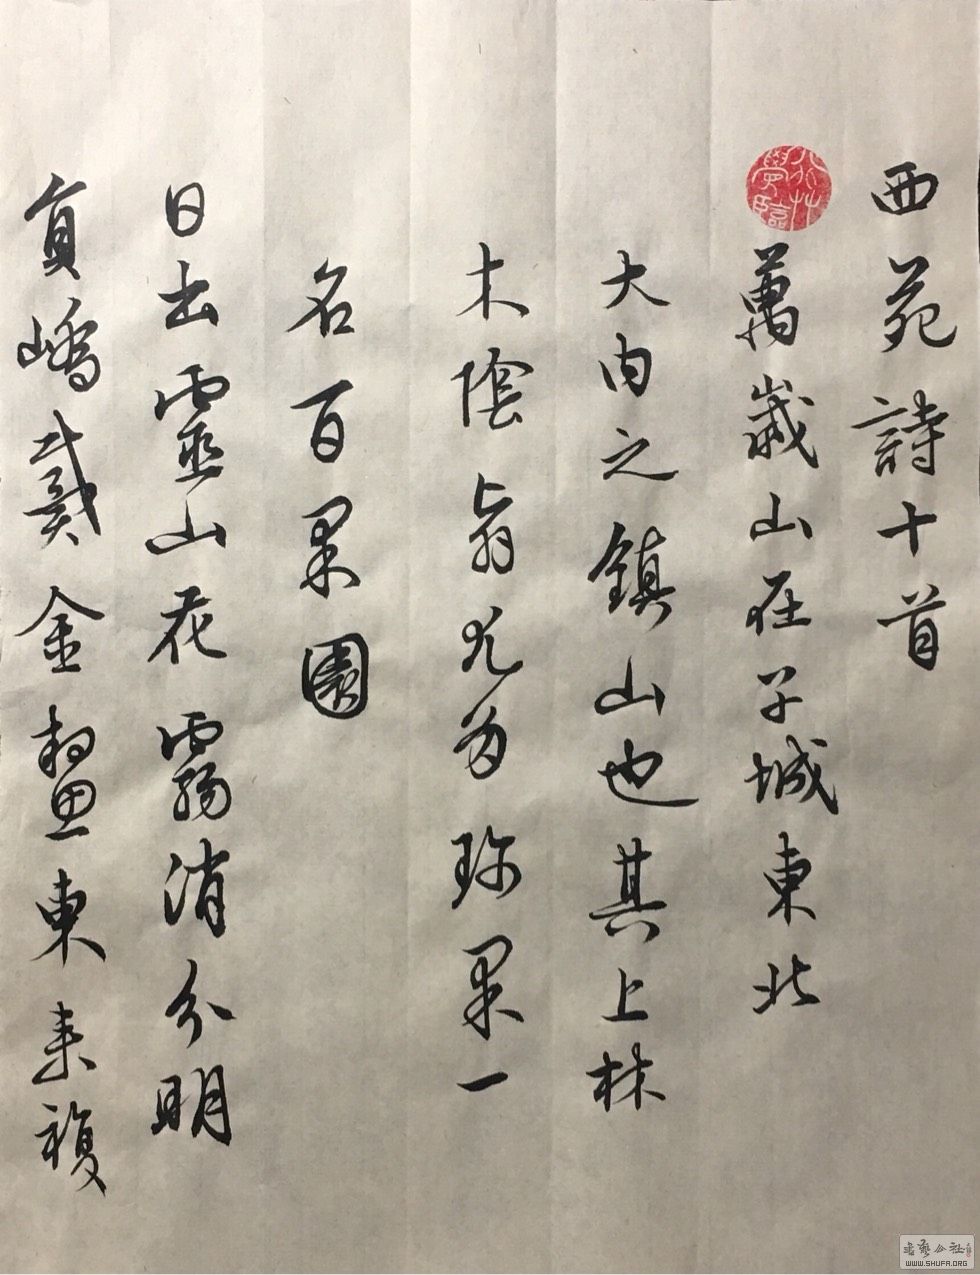 西苑詩十首
萬歲山在子城東北
大内之鎮山也其上林
木陰翳尤多珍果一
名百果園
日出靈山花霧消分明
員嶠戴金鼇東来複
WWW.SHUFA.ORG